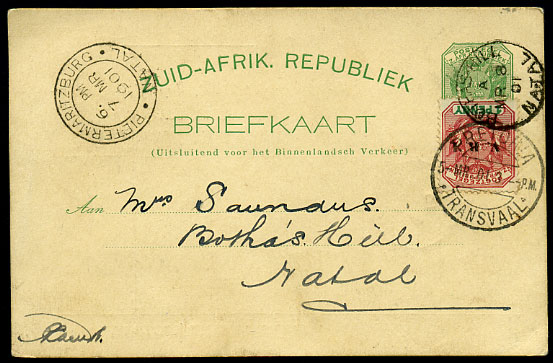 ZUID-AFRIK. REPUBLIEK
BRIEFKAART
(Uitsluitend voor het Binnenlandsch Verkeer)
Aan Mrs Saunders.
Botha's Hill.
Natal
PIETERMARITZBURG · NATAL
6. PM
7
MR
1901
NATAL
A
MR 8
01
PENNY
V.R.I.
TRANSVAAL
P.M.